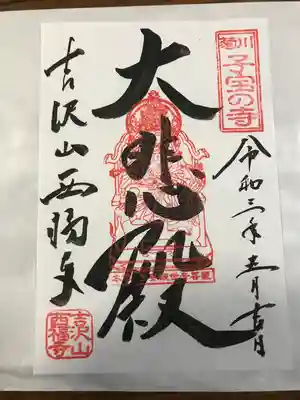 川剃
子宝の寺
令和三年五月吉日
大悲殿
吉沢山西福寺
吉沢山
西福寺